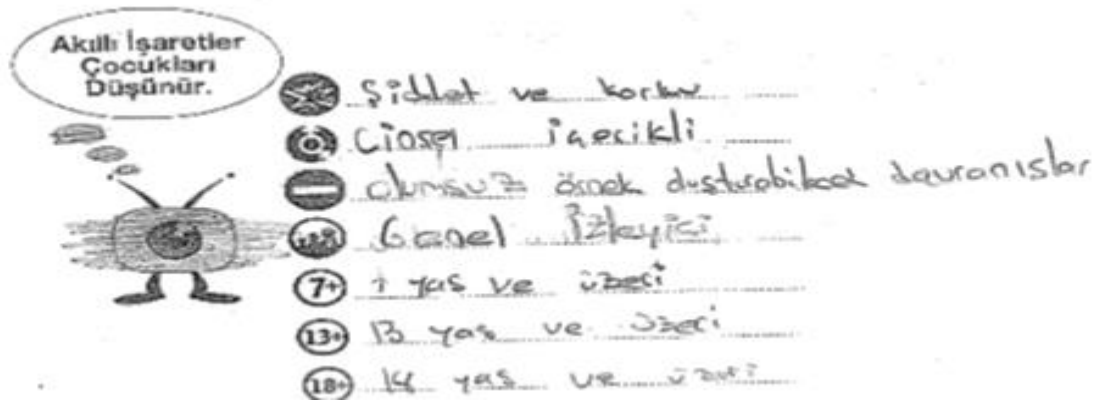 Akıllı İşaretler
Çocukları
Düşünür.
Şiddet ve korku
Cinsel içecikli
olumsuz örnek oluşturabilecek davranışlar
Genel İzleyici
7+ 7 yaş ve üzeri
13+ 13 yaş ve üzeri
18+ 14 yaş ve üzeri